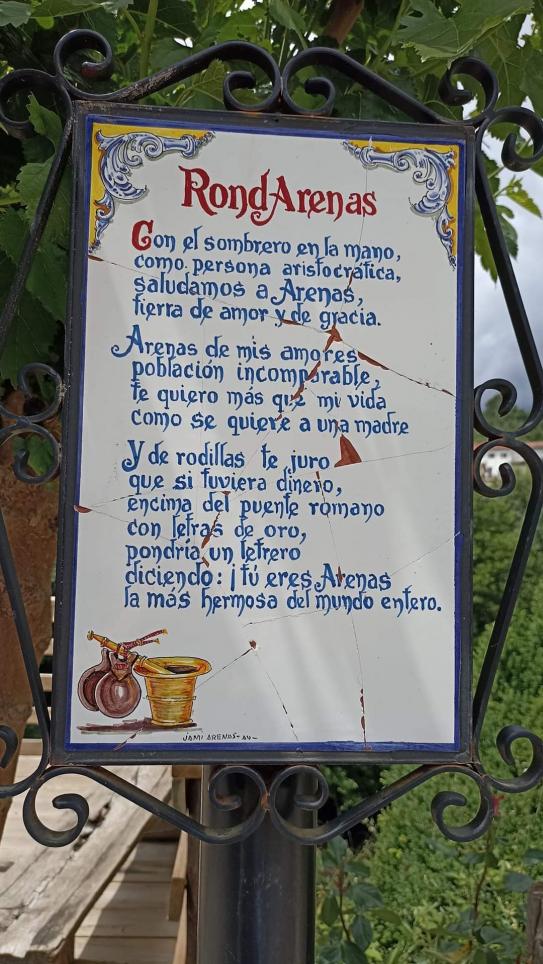 RondArenas
Con el sombrero en la mano,
como persona aristocrática,
saludamos a Arenas,
tierra de amor y de gracia.
Arenas de mis amores
población incomparable,
te quiero más que mi vida
como se quiere a una madre
Y de rodillas te juro
que si tuviera dinero,
encima del puente romano
con letras de oro,
pondría un letrero
diciendo: ¡tú eres Arenas
la más hermosa del mundo entero.
JAMI ARENAS-AV-